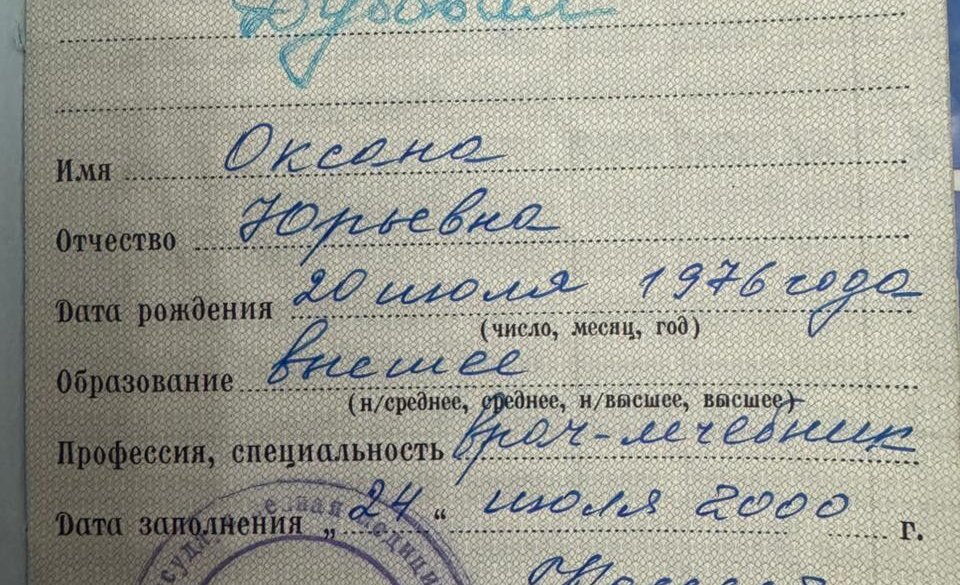 Имя Оксана
Отчество Юрьевна
Дата рождения 20 июля 1976 года
(число, месяц, год)
Образование высшее
(н/среднее, среднее, н/высшее, высшее)
Профессия, специальность врач-лечебник
Дата заполнения „24“ июля 2000 г.